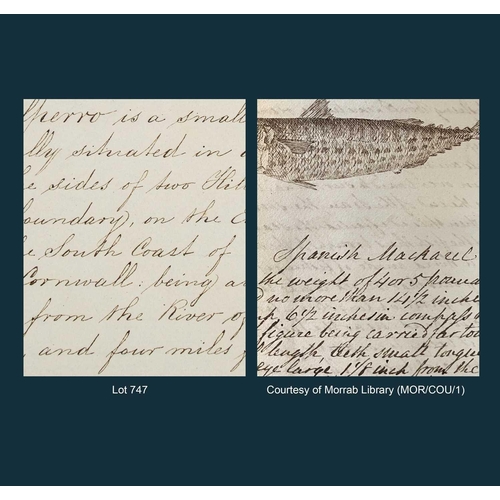 lperro is a small
lly situated in
e sides of two Hill
oundary), on the C
e South Coast of
Cornwall: being) a
from the River of
, and four miles f
Lot 747
Spanish Mackarel
the weight of 4 or 5 pound
no more than 14 1/2 inche
6 1/2 inches in compass
figure being carried
length, teeth small tongue
eye large 1 1/8 inch from the
Courtesy of Morrab Library (MOR/COU/1)